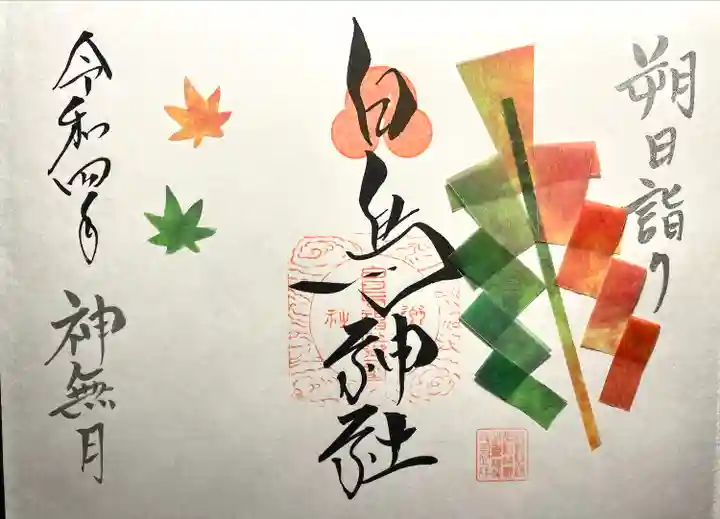 朔日詣り
白岳神社
令和四年
神無月